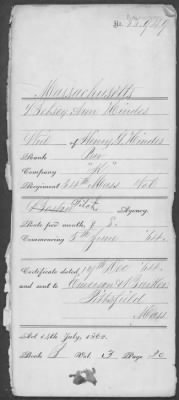 No.
Massachusetts
Betsey Ann Hinder
Wid of Henry G. Hinder
Rank Pri
Company "K"
Regiment 54th Mass Vol
Agency.
Rate per month, $ 8.
Commencing 5th June '64.
Certificate dated, 19th Dec '64.
and sent to
Pittsfield
Mass
Act 14th July, 1862.
Book Vol. 3 Page 20